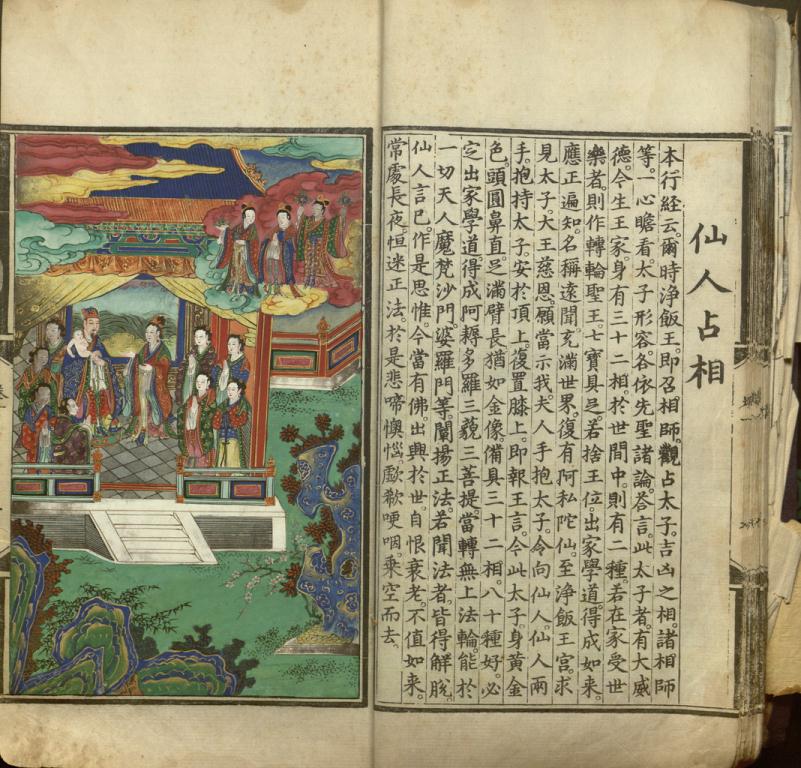 仙人占相
本行経云。爾時浄飯王。即召相師。觀占太子。吉凶之相。諸相師
等。一心瞻看。太子形容。各依先聖諸論。荅言。此太子者。有大威
德。今生王家。身有三十二相。於世間中。則有二種。若在家受世
樂者。則作轉輪聖王。七寶具足。若捨王位。出家學道。得成如来。
應正遍知。名稱遠聞。充滿世界。復有阿私陀仙。至浄飯王宮。求
見太子。大王慈恩。願當示我。夫人手抱太子。令向仙人。仙人兩
手。抱持太子。安於頂上。復置膝上。即報王言。今此太子。身黄金
色。頭圓鼻直。足滿臂長。猶如金像。備具三十二相。八十種好。必
定出家學道。得成阿耨多羅三藐三菩提。當轉無上法輪。能於
一切天人魔梵沙門。婆羅門等。闡揚正法。若聞法者。皆得解脫。
仙人言已。作是思惟。今當有佛。出興於世。自恨衰老。不值如来。
常處長夜。恒迷正法。於是悲啼懊惱。歔欷哽咽。乘空而去。